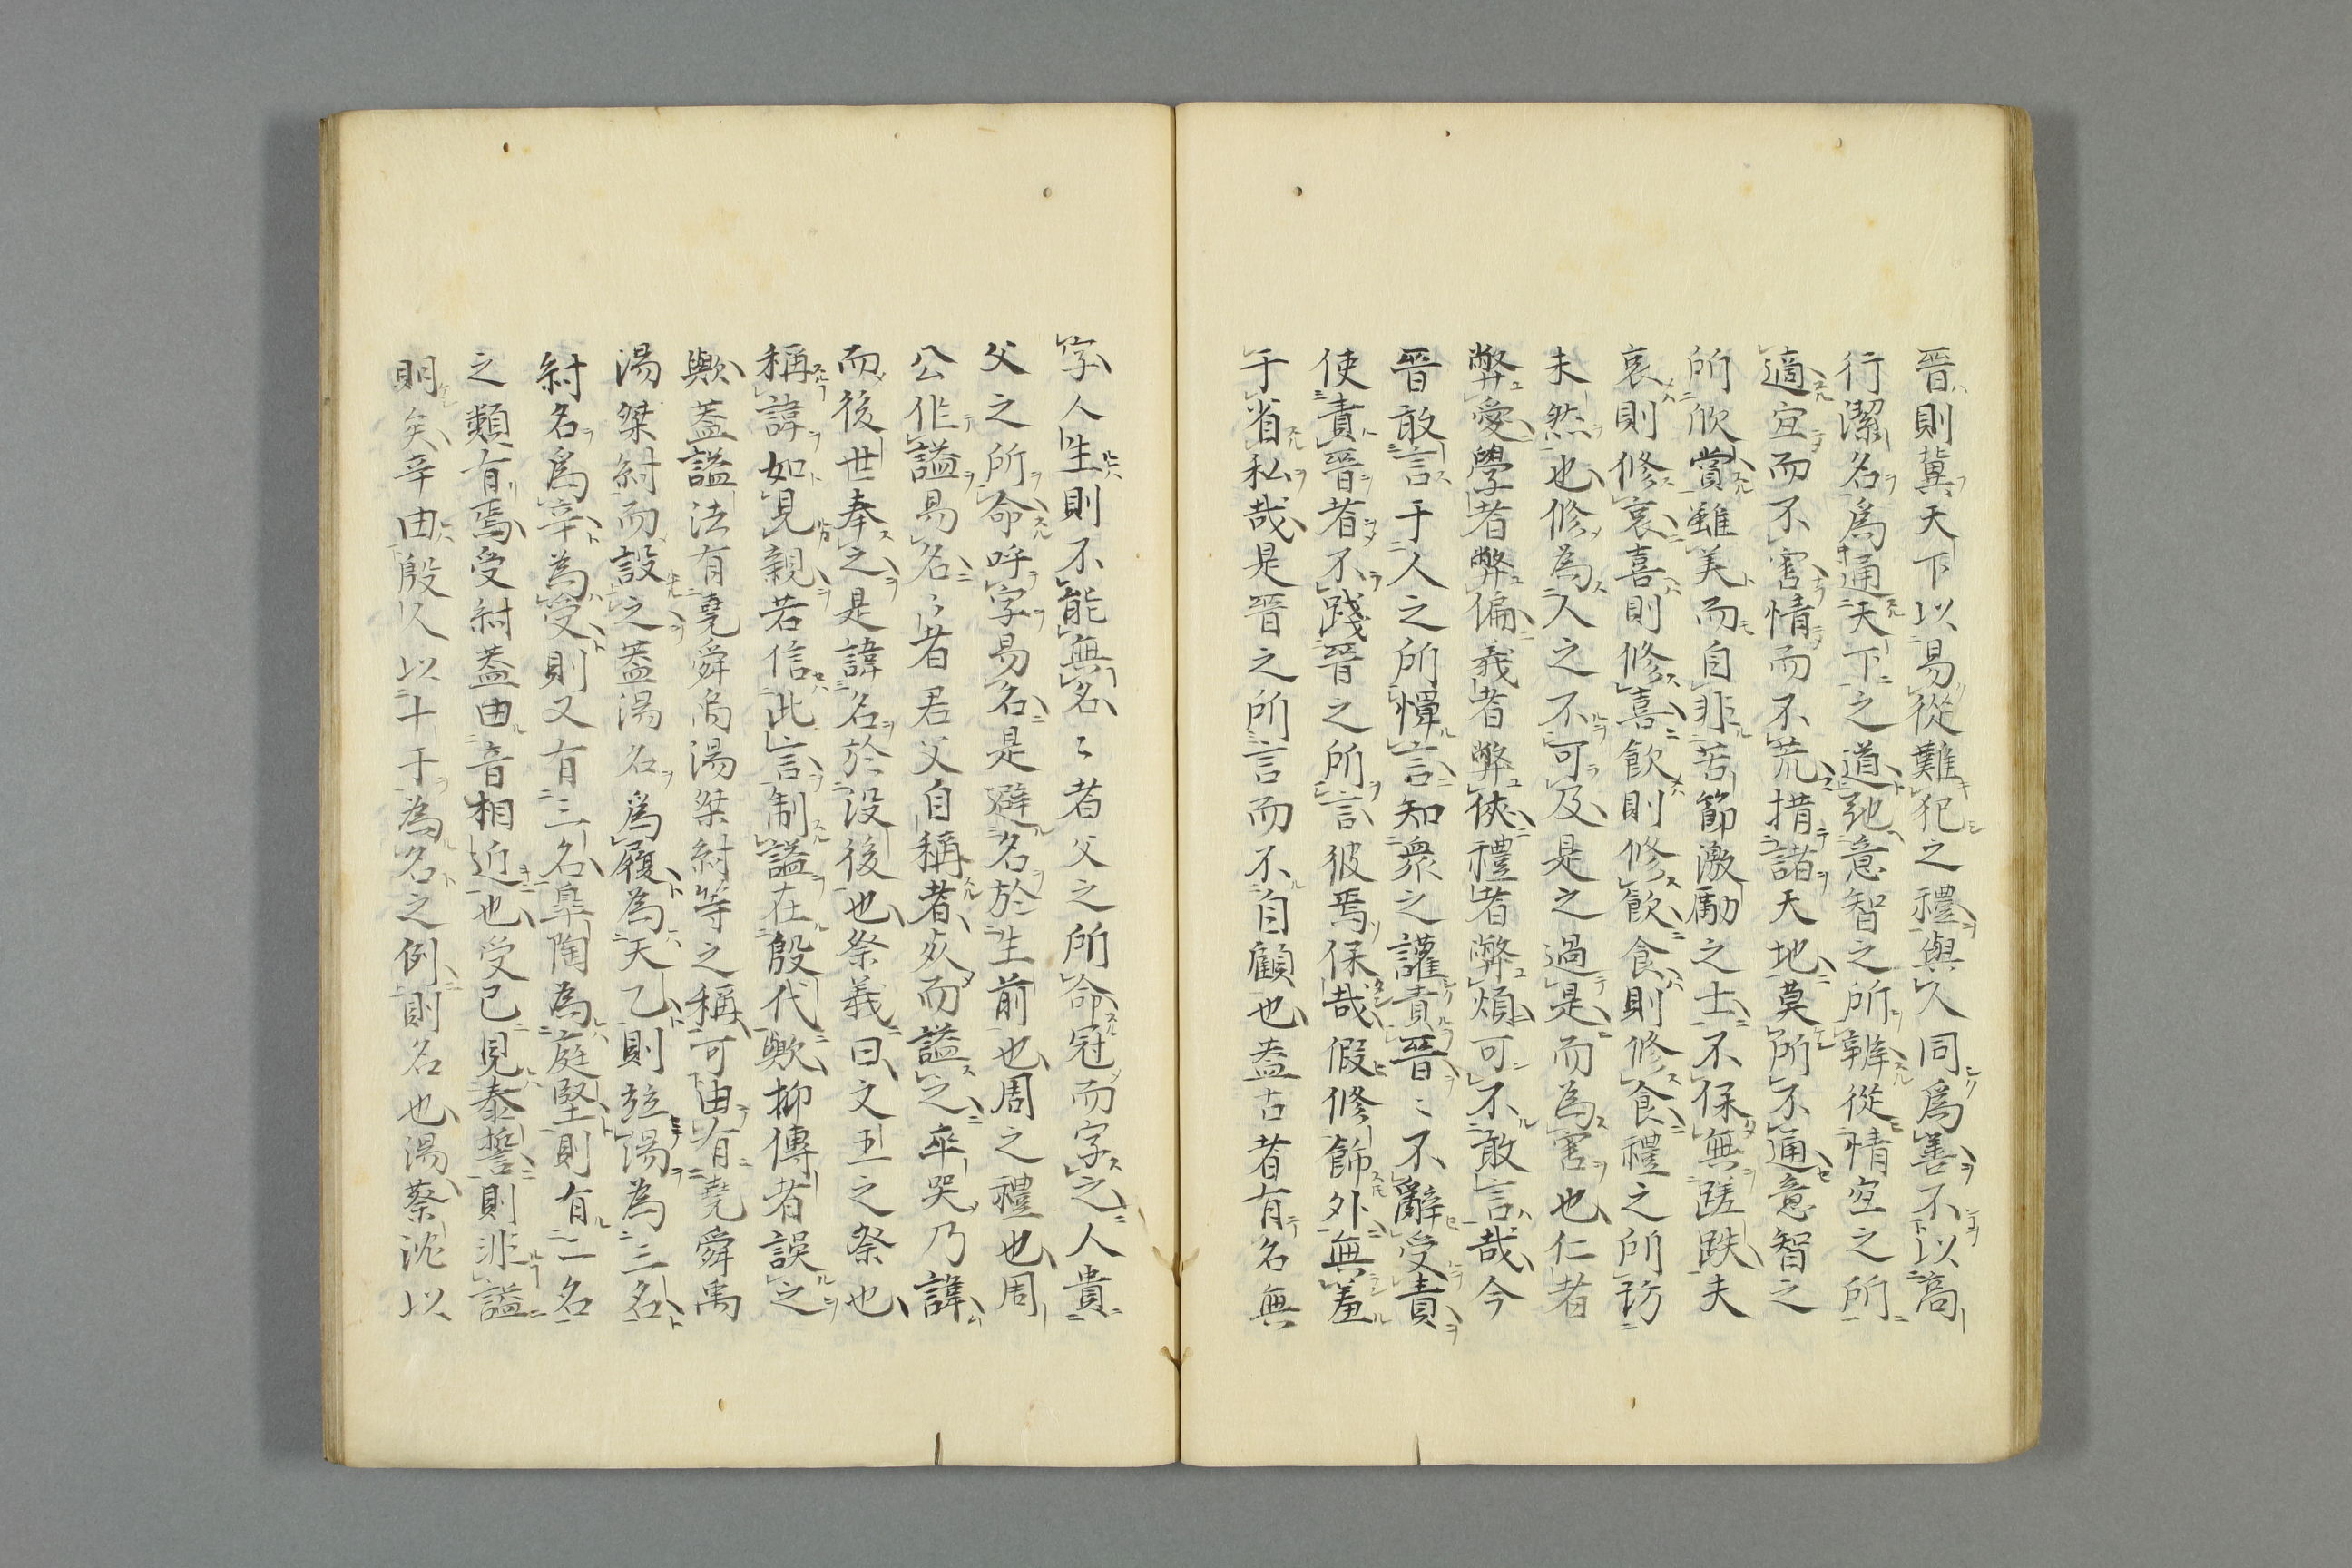 晉則冀天下以易從難犯之禮與人同爲善不以高
行潔名爲通天下之道弛意智之所辨從情宜之所
適宜而不害情而不荒措諸天地莫所不通意智之
所欣賞雖美而自非苦節激勵之士不保無蹉跌夫
哀則修哀喜則修喜飲則修飲食則修食禮之所防
未然也修為人之不可及是之過是而為害也仁者
弊愛學者弊偏義者弊俠禮者弊煩可不敢言哉今
晉敢言于人之所憚言知衆之讙責晉〻不辭受責
使責晉者不踐晉之所言彼焉保哉假修飾外無羞
于省私哉是晉之所言而不自顧也蓋古者有名無
字人生則不能無名〻者父之所命冠而字之人貴
父之所命呼字易名是避名於生前也周之禮也周
公作謚易名〻者君父自稱者故而謚之卒哭乃諱
而後世奉之是諱名於沒後也祭義曰文王之祭也
稱諱如見親若信此言制謚在殷代歟抑傳者誤之
歟蓋謚法有堯舜禹湯桀紂等之稱可由有堯舜禹
湯桀紂而設之蓋湯名爲履為天乙則並湯為三名
紂名爲辛為受則又有三名皐陶為庭堅則有二名
之類有焉受紂蓋由音相近也受已見泰誓則非謚
明矣辛由殷人以十干為名之例則名也湯蔡沈以